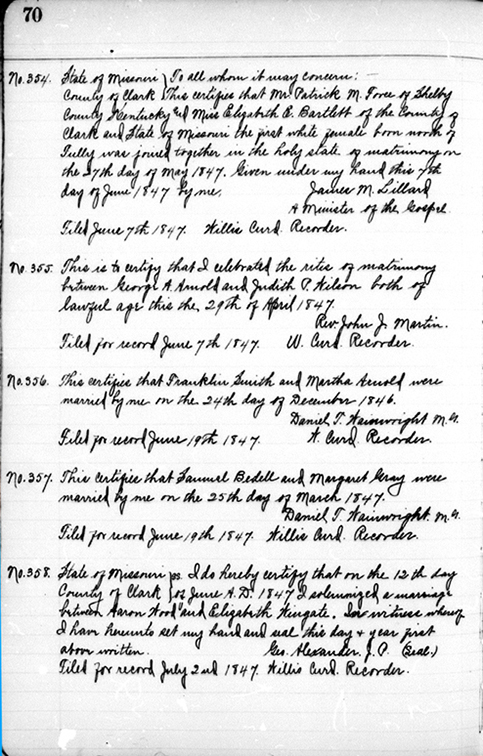 70
No. 354. State of Missouri } To all whom it may concern: —
County of Clark } This certifies that Mr. Patrick M. Force of Shelby
County Kentucky and Miss Elizabeth E. Bartlett of the County of
Clark and State of Missouri the first white female born north of
Tully was joined together in the holy state of matrimony on
the 27th day of May 1847. Given under my hand this 7th
day of June 1847 by me, James M. Lillard
A Minister of the Gospel.
Filed June 7th 1847. Willis Curd. Recorder.
No. 355. This is to certify that I celebrated the rites of matrimony
between George A. Arnold and Judith P. Wilson both of
lawful age this the 29th of April 1847.
Rev. John J. Martin.
Filed for record June 7th 1847. W. Curd. Recorder.
No. 356. This certifies that Franklin Smith and Martha Arnold were
married by me on the 24th day of December 1846.
Daniel T. Wainwright M.G.
Filed for record June 19th 1847. W. Curd. Recorder.
No. 357. This certifies that Samuel Bedell and Margaret Gray were
married by me on the 25th day of March 1847.
Daniel T. Wainwright. M.G.
Filed for record June 19th 1847. Willis Curd. Recorder.
No. 358. State of Missouri } ss. I do hereby certify that on the 12th day
County of Clark } of June A.D. 1847 I solemnized a marriage
between Aaron Wood and Elizabeth Wingate. In witness whereof
I have hereunto set my hand and seal this day & year first
above written. Geo. Alexander. J. P. (Seal.)
Filed for record July 2nd 1847. Willis Curd. Recorder.